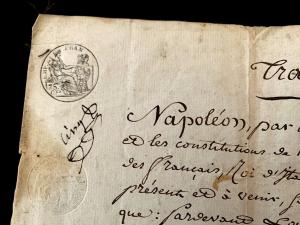 Napoléon, par
et les constitutions de
des français, Roi d'Ita
présent et à venir, S
que: Pardevant